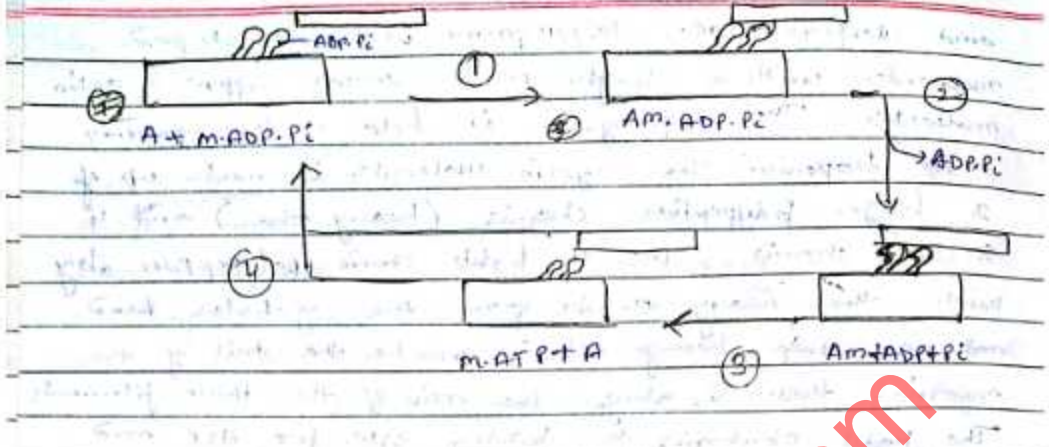 ADP.Pi
①
A + M.ADP.Pi
AM.ADP.Pi
②
ADP.Pi
④
M.ATP + A
③
AM+ADP+Pi
.com